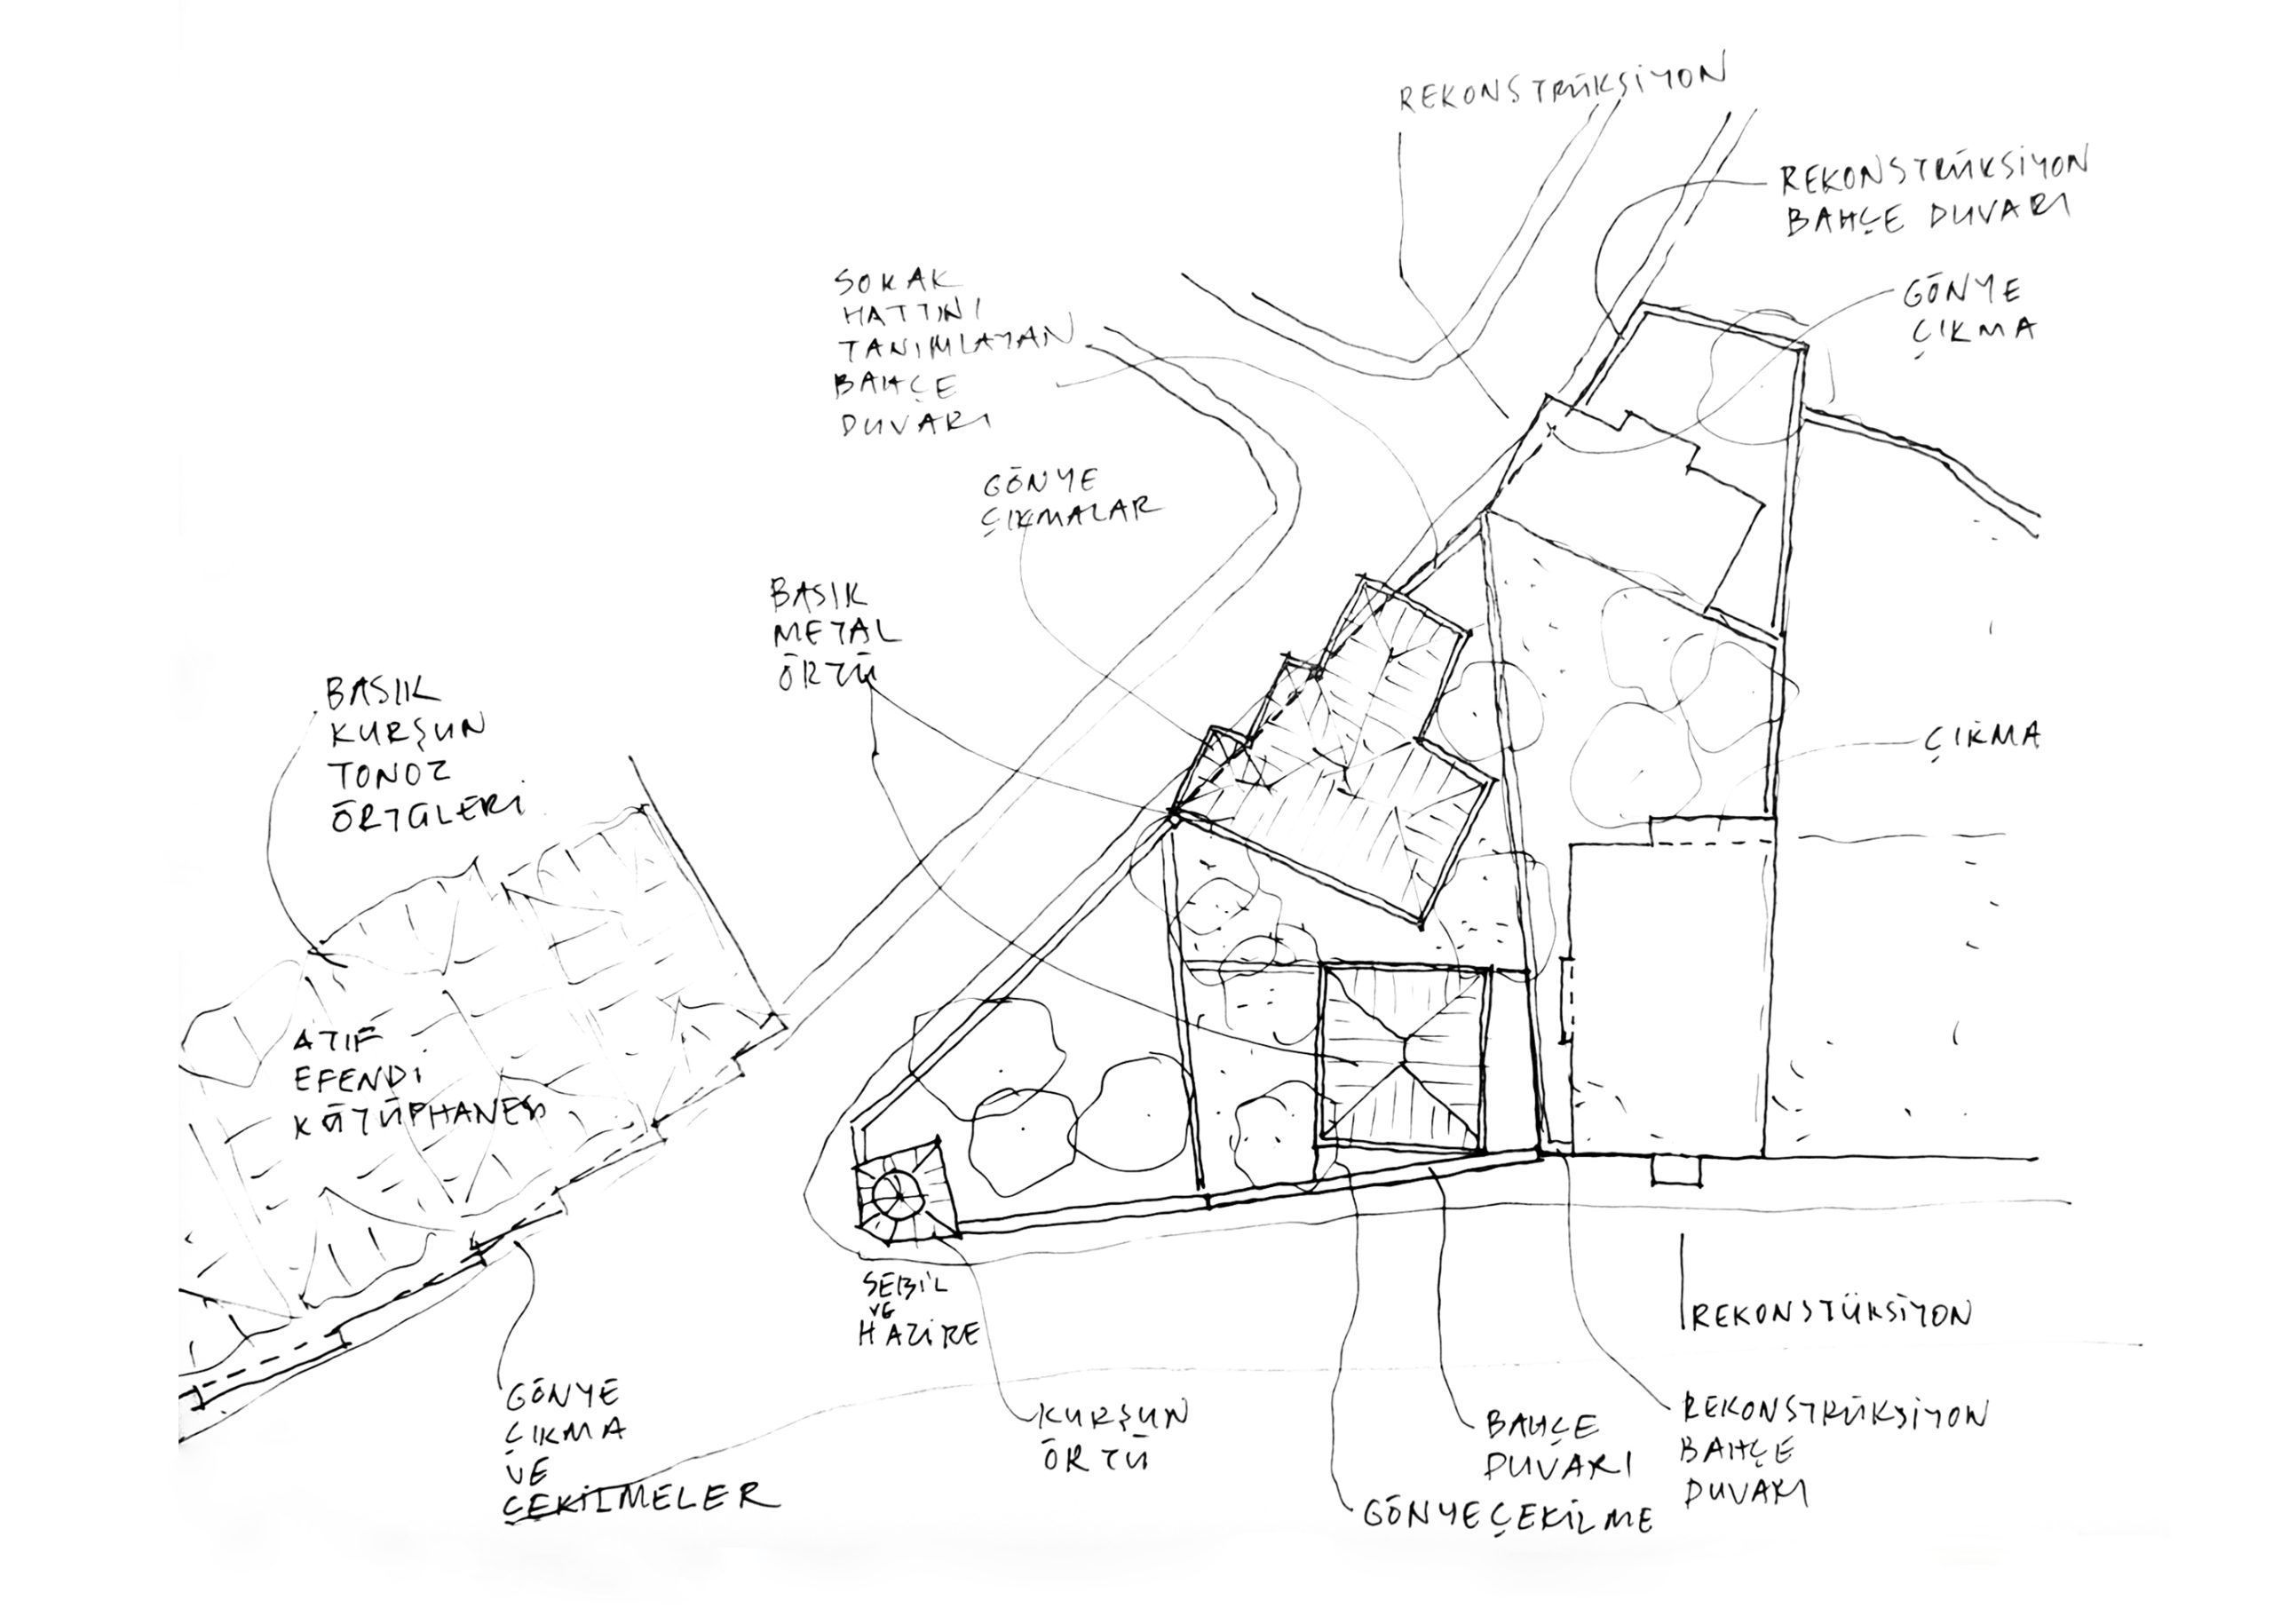 REKONSTRÜKSİYON
REKONSTRÜKSİYON
BAHÇE DUVARI
GÖNYE
ÇIKMA
SOKAK
HATTINI
TANIMLAYAN
BAHÇE
DUVARI
GÖNYE
ÇIKMALAR
BASIK
METAL
ÖRTÜ
BASIK
KURŞUN
TONOZ
ÖRTÜLERİ
ÇIKMA
ATIF
EFENDİ
KÜTÜPHANESİ
SEBİL
VE
HAZİRE
REKONSTÜKSİYON
GÖNYE
ÇIKMA
VE
ÇEKİLMELER
KURŞUN
ÖRTÜ
BAHÇE
DUVARI
REKONSTRÜKSİYON
BAHÇE
DUVARI
GÖNYE ÇEKİLME